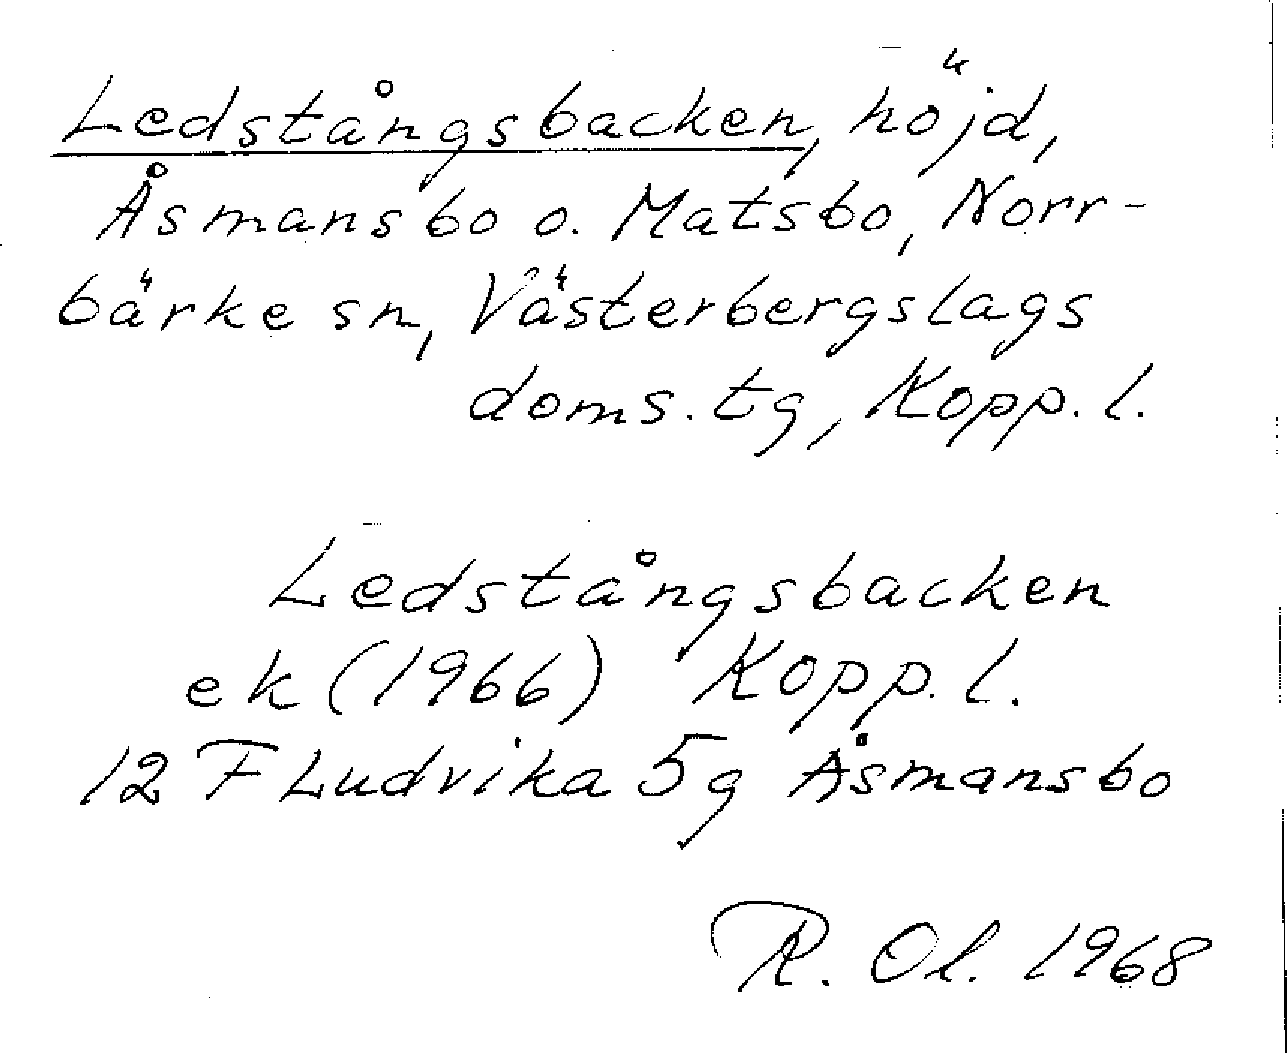 Ledstångsbacken, höjd,
Åsmansbo o. Matsbo, Norr-
bärke sn, Västerbergslags
doms. tg, Kopp. l.
Ledstångsbacken
ek (1966) Kopp. l.
12 F Ludvika 5g Åsmansbo
R. Ol. 1968